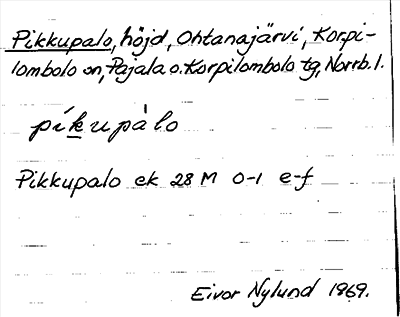 Pikkupalo, höjd, Ohtanajärvi, Korpi-
lombolo sn, Pajala o. Korpilombolo tg, Norrb. l.
píkupàlo
Pikkupalo ek 28 M 0-1 e-f
Eivor Nylund 1969.